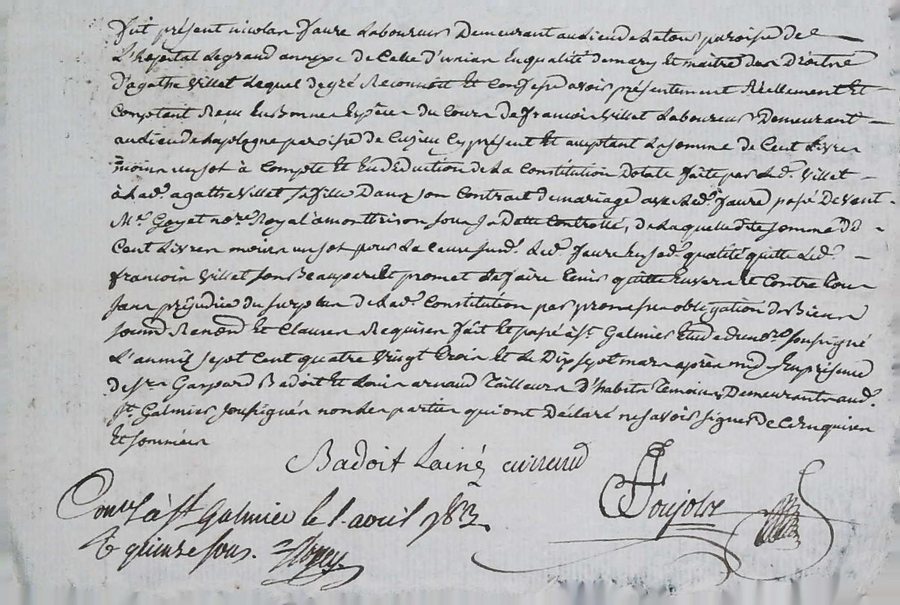 fut présent nicolas faure laboureur Demeurant au lieu de Laton paroisse de
L'hopital Legrand annexe de Celle d'unian En qualité de mary Et maitre des Droits
D'agathe Villet Lequel De gré Reconnoit Et Confesse avoir présentement Réellement Et
Comptant Reçu En Bonnes Espèces du Cours de francois Villet Laboureur Demeurant
au lieu de Laplagne paroisse de Cuzieu Cy présent Et acceptant La somme de Cent Livres
moins un sol à Compte Et En déduction de La Constitution Dotale faite par Led. Villet
à Lad. agathe Villet sa fille Dans son Contrat de mariage avec Led. faure passé Devant
Mre Goyet nore Royal à montbrison sous sa Datte Controllé, de Laquelle dite somme de
Cent Livres moins un sol pour La Cause susd. Led. faure En sad. qualité quitte Led.
francois Villet son Beaupere Et promet Le faire tenir quitte Envers Et Contre tous
sans préjudice du surplus de Lad. Constitution par promesse obligation de Biens
soumis Renond Et Clauses Requises fait Et passé à St Galmier Etude du nore soussigné
L'an mil sept Cent quatre Vingt trois Et Le Dix sept mars après midy En présence
de srs Gaspard Badoit Et Louis arnaud Tailleurs D'habits Temoins Demeurant aud.
St Galmier soussignés non Les parties qui ont Déclaré ne savoir signer de Ce Enquises
Et sommées
Badoit Lainé arnaud
Conlé à St Galmier le 1. avril 1783
R quinze sous.